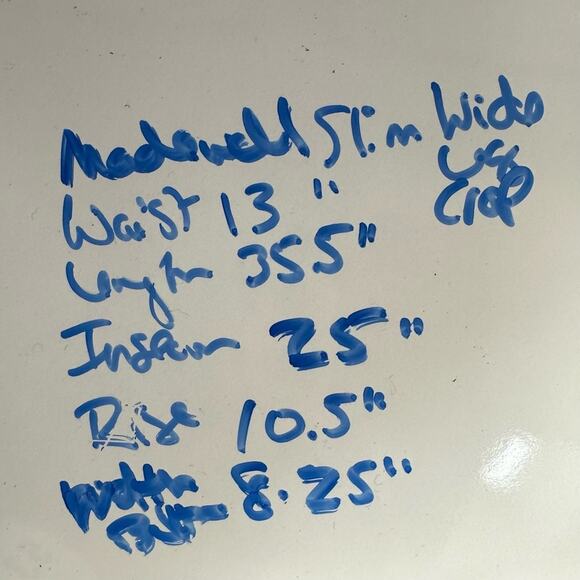 Madewell Slim Wide
Leg
Crop
Waist 13"
Length 35.5"
Inseam 25"
Rise 10.5"
Width
Bottom 8.25"